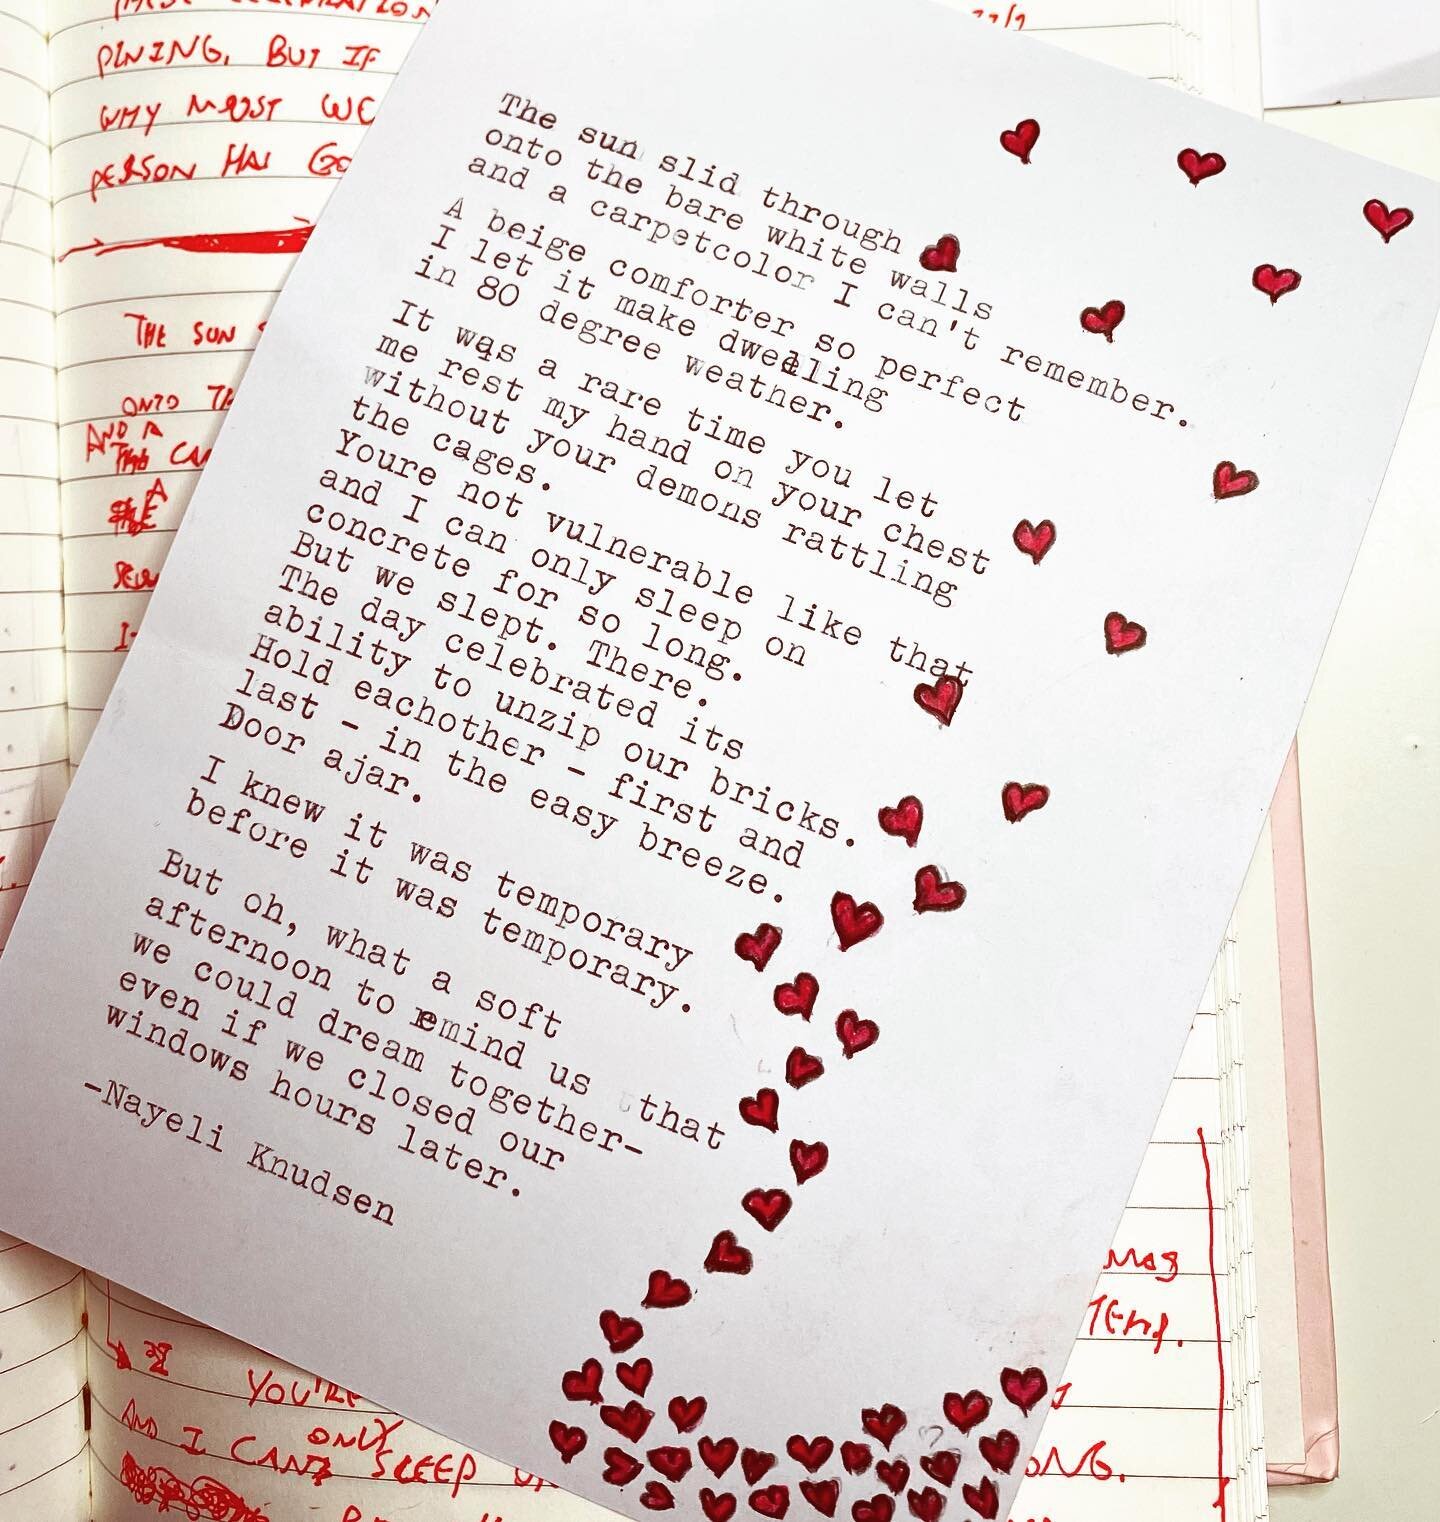 PINING, BUT IF
WHY MUST WE
PERSON HAS
THE SUN
ONTO
AND A
A
The sun slid through
onto the bare white walls
and a carpetcolor I can't remember.
A beige comforter so perfect
I let it make dwelling
in 80 degree weather.
It was a rare time you let
me rest my hand on your chest
without your demons rattling
the cages.
Youre not vulnerable like that
and I can only sleep on
concrete for so long.
But we slept. There.
The day celebrated its
ability to unzip our bricks.
Hold eachother - first and
last - in the easy breeze.
Door ajar.
I knew it was temporary
before it was temporary.
But oh, what a soft
afternoon to remind us that
we could dream together-
even if we closed our
windows hours later.
-Nayeli Knudsen
YOU'RE
ONLY
AND I CAN SLEEP